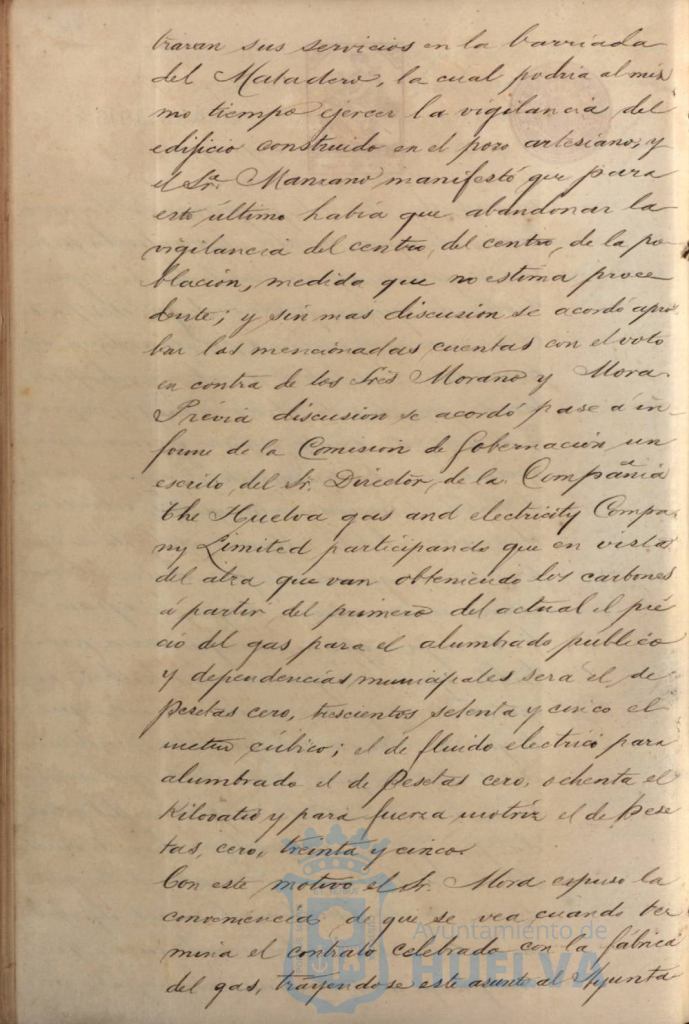 traran sus servicios en la barriada
del Matadero, la cual podria al mis
mo tiempo ejercer la vigilancia del
edificio construido en el pozo artesiano; y
el Sr. Manzano manifestó que para
esto último habia que abandonar la
vigilancia del centro, del centro, de la po-
blación, medida que no estima proce
dente; y sin mas discusion se acordó apro
bar las mencionadas cuentas con el voto
en contra de los Sres Morano y Mora.
Prévia discusion se acordó pase á in-
forme de la Comisión de Gobernación un
escrito del Sr. Director de la Compañia
The Huelva gas and electricity Compa
ny Limited participando que en vista
del alza que van obteniendo los carbones
á partir del primero del actual el pré
cio del gas para el alumbrado público
y dependencias municipales será el de
pesetas cero, trescientos setenta y cinco el
metro cúbico; el de fluido electrico para
alumbrado el de pesetas cero, ochenta el
Kilovatio y para fuerza motriz el de pese
tas, cero, treinta y cinco.
Con este motivo el Sr. Mora espuso la
conveniencia de que se vea cuando ter
mina el contrato celebrado con la fábrica
del gas, trayendose este asunto al Ayunta
Ayuntamiento de
HUELVA